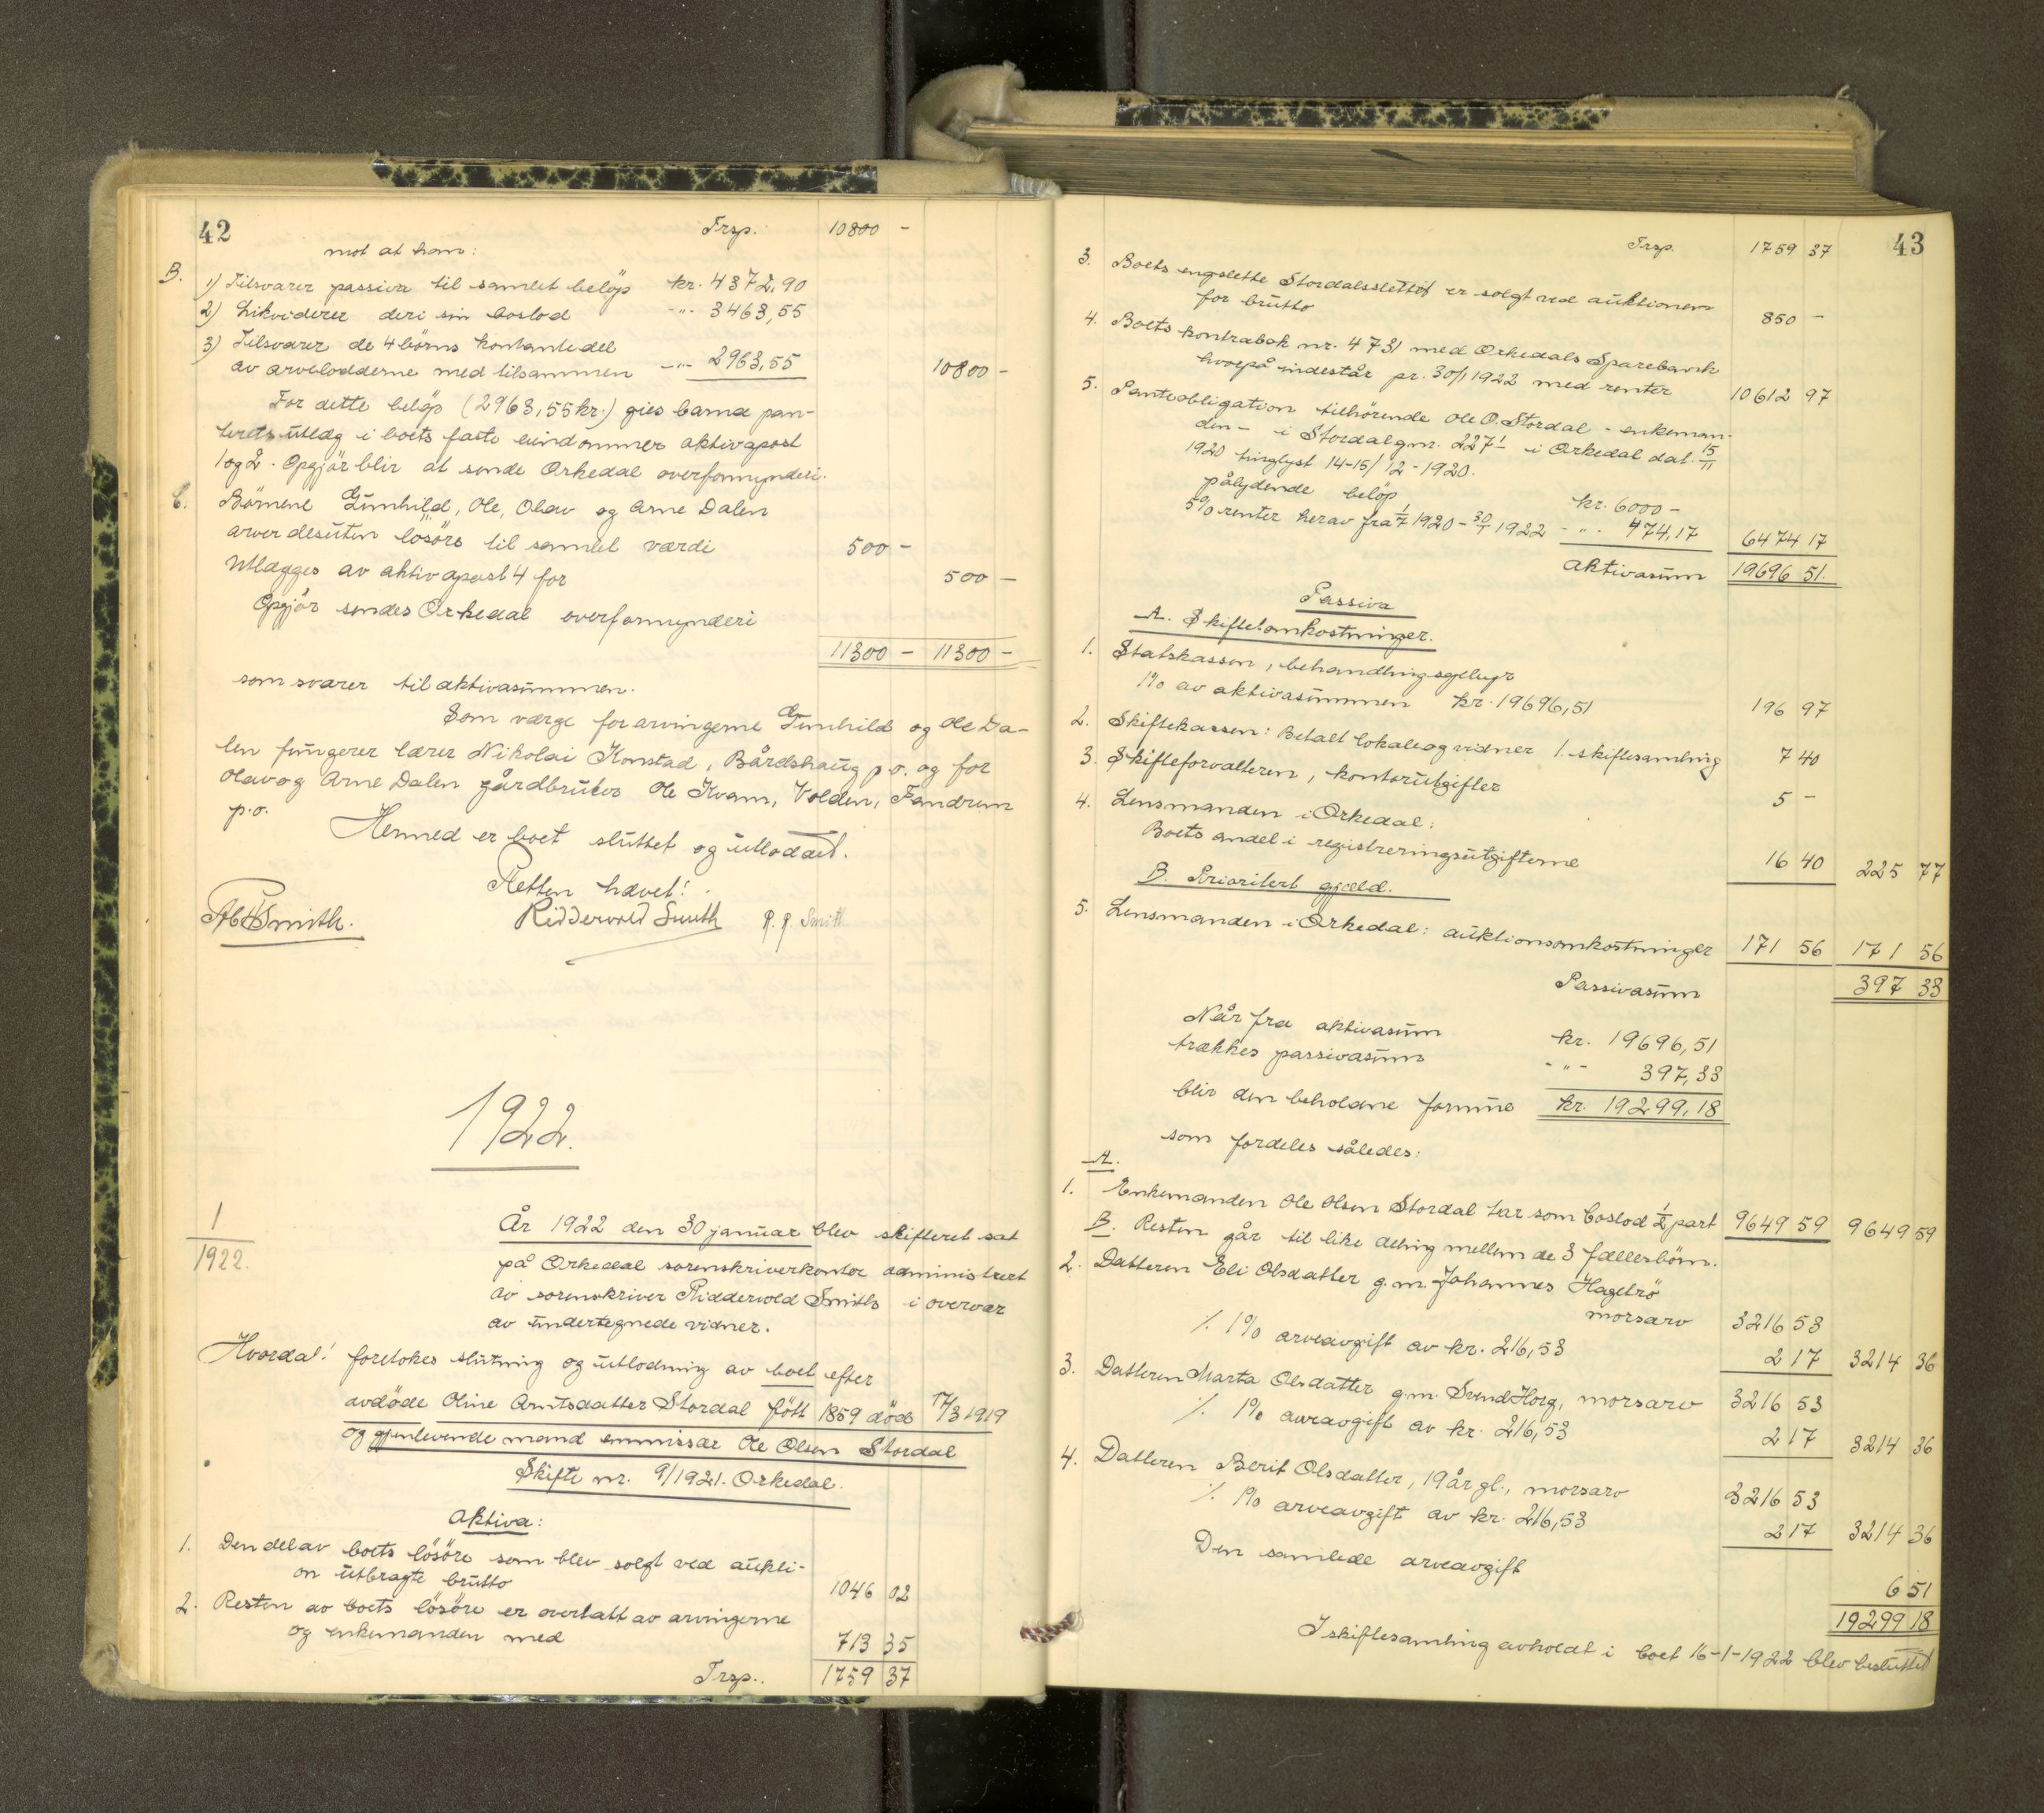 42
Trsp. 10800 -
mot at han:
B. 1) Tilsvarer passiva til samlet beløp kr. 4372,90
2) Likviderer deri sin boslod -"- 3463,55
3) Tilsvarer de 4 børns kontante del
av arvelodderne med tilsammen -"- 2963,55 10800 -
For dette beløp (2963,55 kr.) gies barna pan-
teretsutlæg i boets faste eiendommer aktivapost
1 og 2. Opgjør blir at sende Orkedal overformynderi.
C. Børnene Gunhild, Ole, Olav og Arne Dalen
arver desuten løsøre til samlet værdi 500 -
Utlægges av aktivapost 4 for 500 -
Opgjør sendes Orkedal overformynderi
11300 - 11300 -
som svarer til aktivasummen.
Som værge for arvingerne Gunhild og Ole Da-
len fungerer lærer Nikolai Konstad, Bårdshaug p.o. og for
Olav og Arne Dalen gårdbruker Ole Kvam, Volden, Fandrem
p.o.
Hermed er boet sluttet og utloddet.
Retten hævet!
Smith. Ridderwold Smith R. R. Smith
1922.
1
1922.
År 1922 den 30 januar blev skifteret sat
på Orkedal sorenskriverkontor administrert
av sorenskriver Ridderwold Smith i overvær
av undertegnede vidner.
Hvorda! foretokes slutning og utlodning av boet efter
avdøde Oline Arntsdatter Stordal født 1859 død 17/3 1919
og gjenlevende mand emmissær Ole Olsen Stordal
Skifte nr. 9/1921. Orkedal.
Aktiva:
1. Den del av boets løsøre som blev solgt ved aukti-
on utbragte brutto 1046 02
2. Resten av boets løsøre er overtatt av arvingerne
og enkemanden med 713 35
Trsp. 1759 37
43
Trsp. 1759 37
3. Boets engslette Stordalsslettet er solgt ved auktionen
for brutto 850 -
4. Boets kontrabok nr. 4731 med Orkedals Sparebank
hvorpå indestår pr. 30/1 1922 med renter 10612 97
5. Panteobligation tilhørende Ole O. Stordal - enkeman-
den - i Stordal gnr. 227/1 i Orkedal dat. 15/11
1920 tinglyst 14-15/12-1920.
pålydende beløp kr. 6000 -
5% renter herav fra 1/7 1920 - 30/1 1922 -"- 474,17 6474 17
Aktivasum 19696 51.
Passiva
A. Skifteomkostninger.
1. Statskassen, behandlingsgebyr
1% av aktivasummen kr. 19696,51 196 97
2. Skiftekassen: Betalt lokale og vidner 1. skiftesamling 7 40
3. Skifteforvalteren, kontorutgifter 5 -
4. Lensmanden i Orkedal:
Boets andel i registreringsutgifterne 16 40 225 77
B. Prioritert gjæld.
5. Lensmanden i Orkedal: auktionsomkostninger 171 56 171 56
Passivasum 397 33
Når fra aktivasum kr. 19696,51
trækkes passivasum -"- 397,33
blir den beholdne formue kr. 19299,18
som fordeles således:
A.
1. Enkemanden Ole Olsen Stordal tar som boslod 1/2 part 9649 59 9649 59
B. Resten går til like deling mellem de 3 fællesbørn.
2. Datteren Eli Olsdatter g.m. Johannes Hagebrø
morsarv 3216 53
% 1% arveavgift av kr. 216,53 2 17 3214 36
3. Datteren Marta Olsdatter g.m. Svend Horg, morsarv 3216 53
% 1% arveavgift av kr. 216,53 2 17 3214 36
4. Datteren Berit Olsdatter, 19 år gl., morsarv 3216 53
% 1% arveavgift av kr. 216,53 2 17 3214 36
Den samlede arveavgift 6 51
19299 18
I skiftesamling avholdt i boet 16-1-1922 blev besluttet